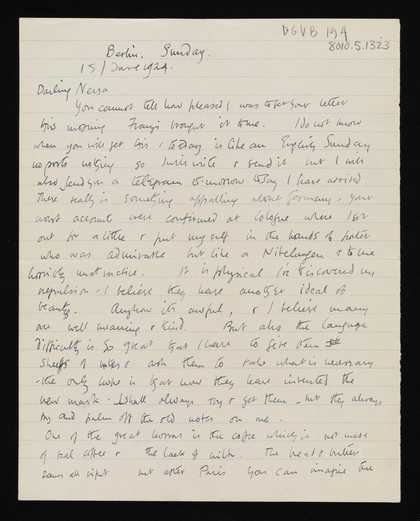 VGVB 194
8010.5.1323
Berlin. Sunday.
15/June 1924.
Darling Nessa
You cannot tell how pleased I was to get your letter
this morning Franzi brought it to me. I do not know
when you will get this & today is like an English Sunday
no posts nothing so I will write & send it but I will
also send you a telegram to-morrow to say I have arrived
There really is something appalling about Germany, your
worst accounts were confirmed at Cologne where I got
out for a little & put myself in the hands of porter
who was admirable but like a Nibelungen & to me
horribly unattractive. It is physical I've discovered my
repulsion. I believe they have another ideal of
beauty. Anyhow it's awful, & I believe many
are well meaning & kind. But also the language
difficulty is so great that I have to give them
sheets of notes & ask them to take what is necessary
- the only hope is that now they have invented the
new mark. I shall always try & get them - but they always
try and palm off the old notes on me.
One of the great horrors is the coffee which is not made
of real coffee & the lack of milk. The bread & butter
seems all right but after Paris you can imagine the